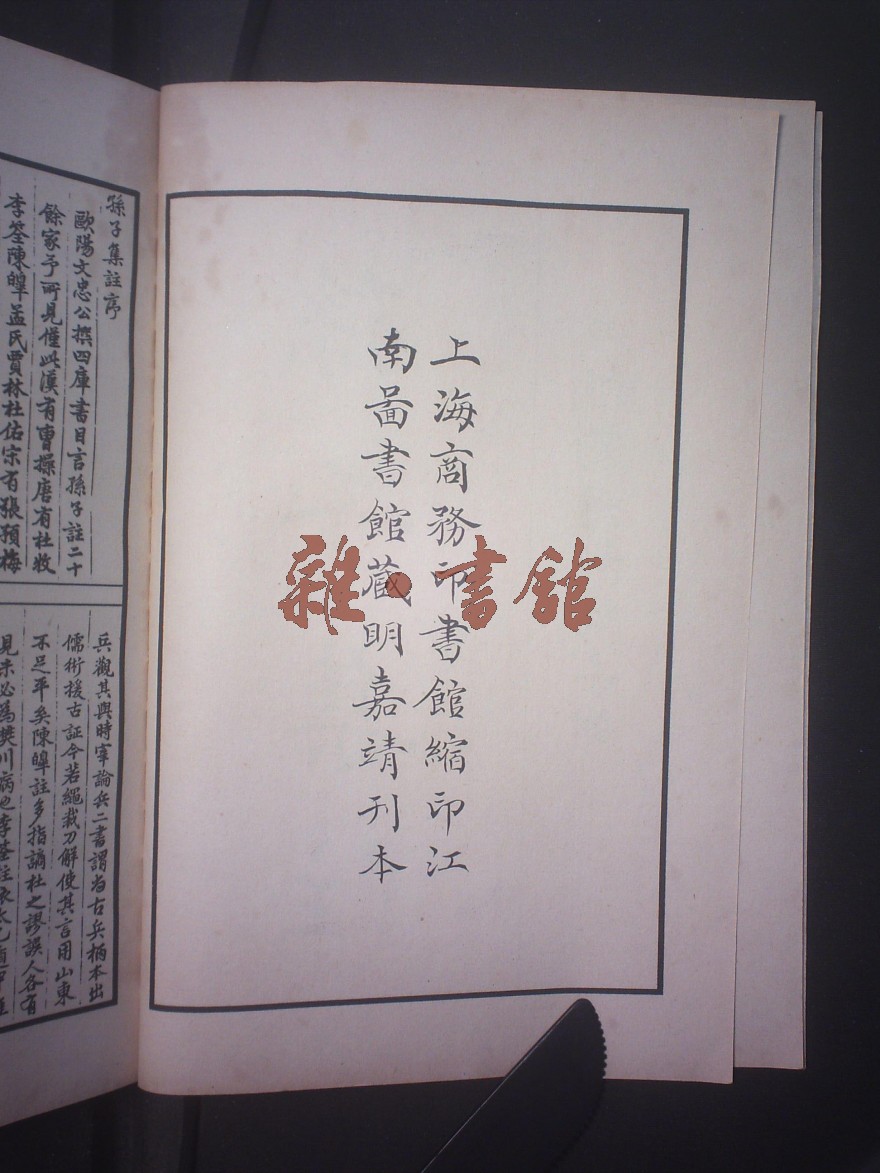 上海商務印書館縮印江
南啚書館藏明嘉靖刊本
雜·書館
孫子集註序
歐陽文忠公撰四庫書目言孫子註二十
餘家予所見僅此漢有曹操唐有杜牧
李筌陳皥孟氏賈林杜佑宋有張預梅
兵觀其與時宰論兵二書謂古兵柄本出
儒術援古証今若繩裁刀解使其言用山東
不足平矣陳皥註多指謫杜之謬誤人各有
見未必為樊川病也李筌註依太乙遁甲